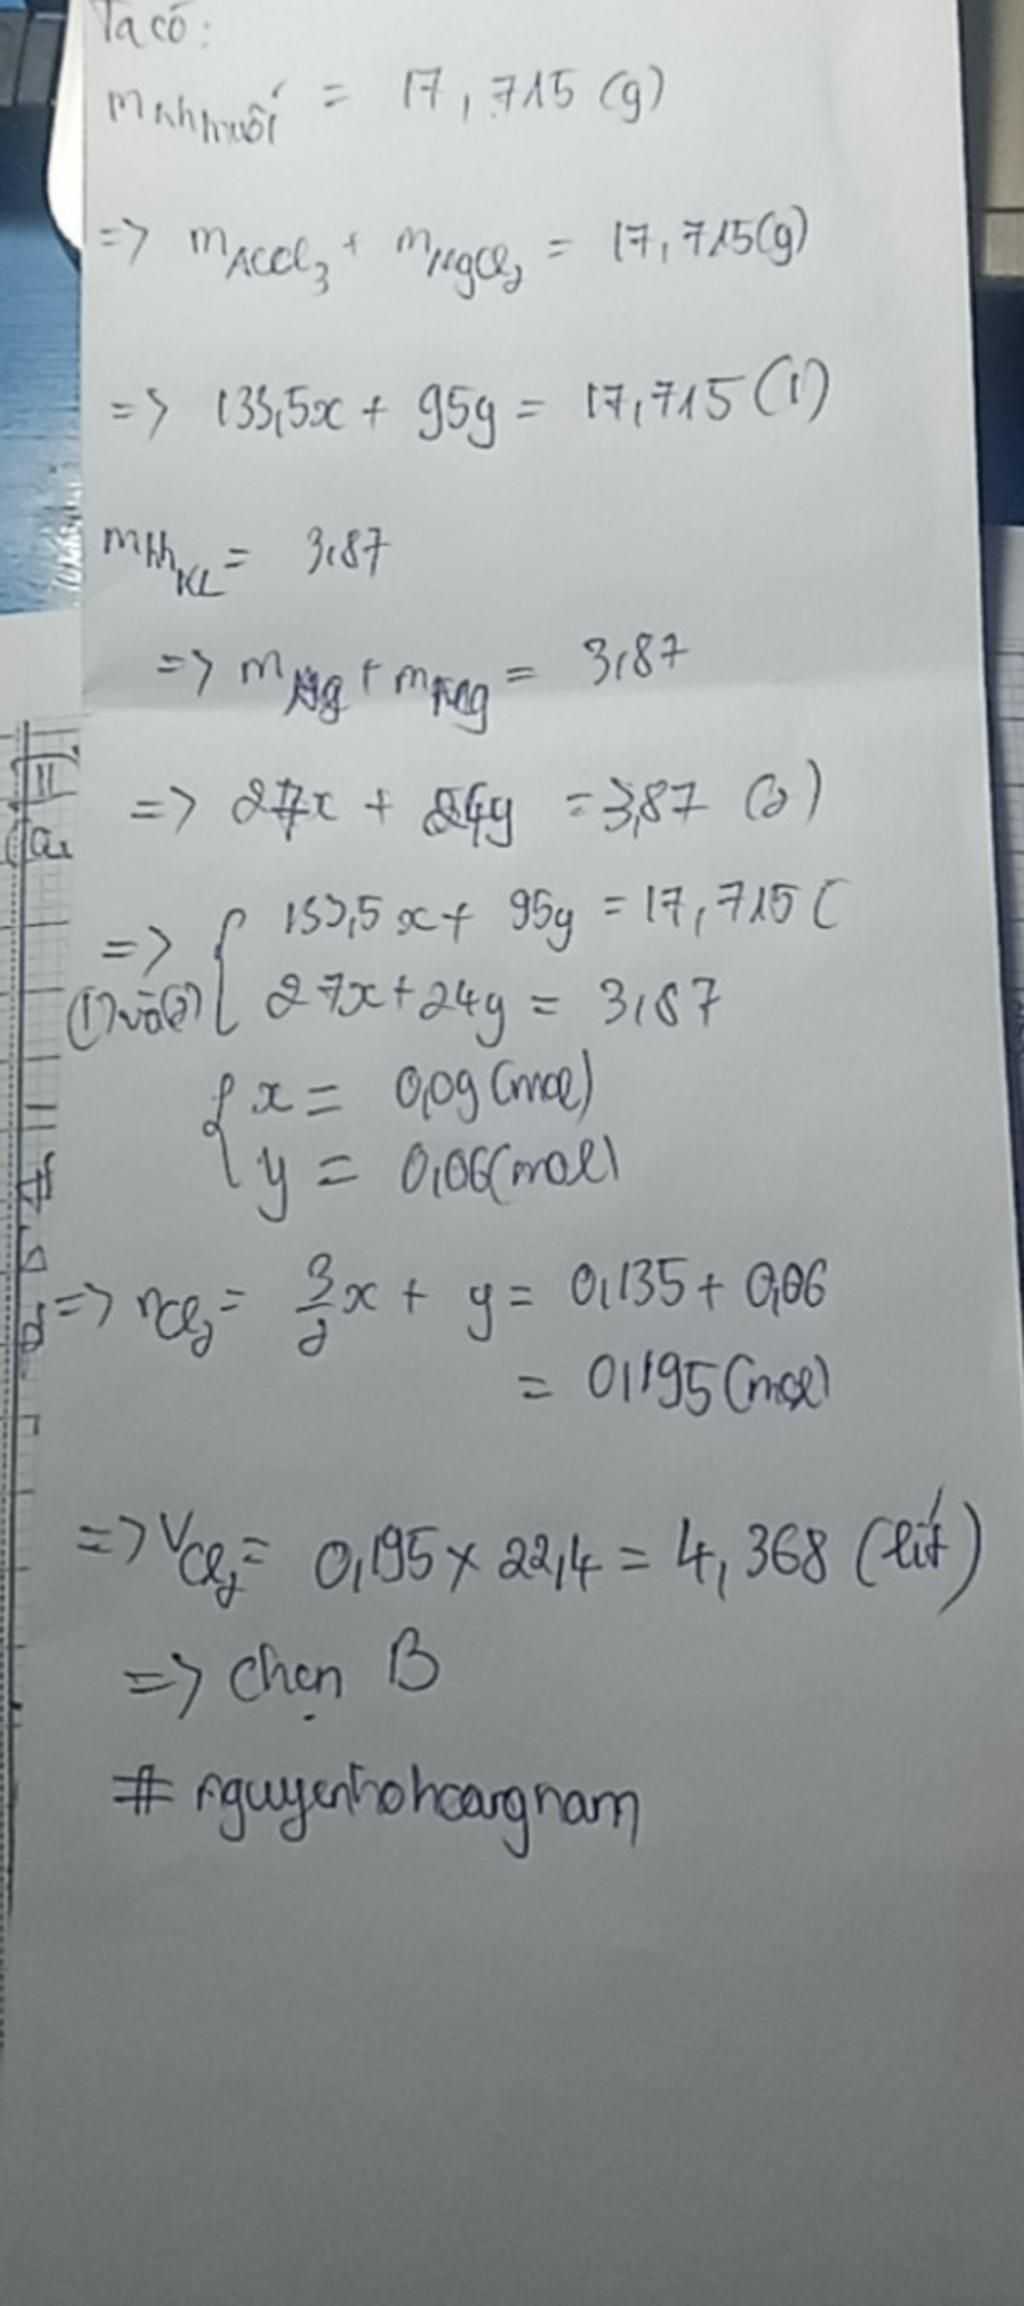 Ta có:
mhh muối = 17,715 (g)
=> mAlCl3 + mMgCl2 = 17,715(g)
=> 133,5x + 95y = 17,715 (1)
mhhKL = 3,87
=> m + m = 3,87
=> 27x + 24y = 3,87 (2)
=> { 133,5x + 95y = 17,715 (
(1) và (2) { 27x + 24y = 3,87
{ x = 0,09 (mol)
{ y = 0,06 (mol)
=> nCl2 = 3/2 x + y = 0,135 + 0,06
= 0,195 (mol)
=> VCl2 = 0,195 x 22,4 = 4,368 (lít)
=> chọn B
# nguyenhohoangnam
II
a,